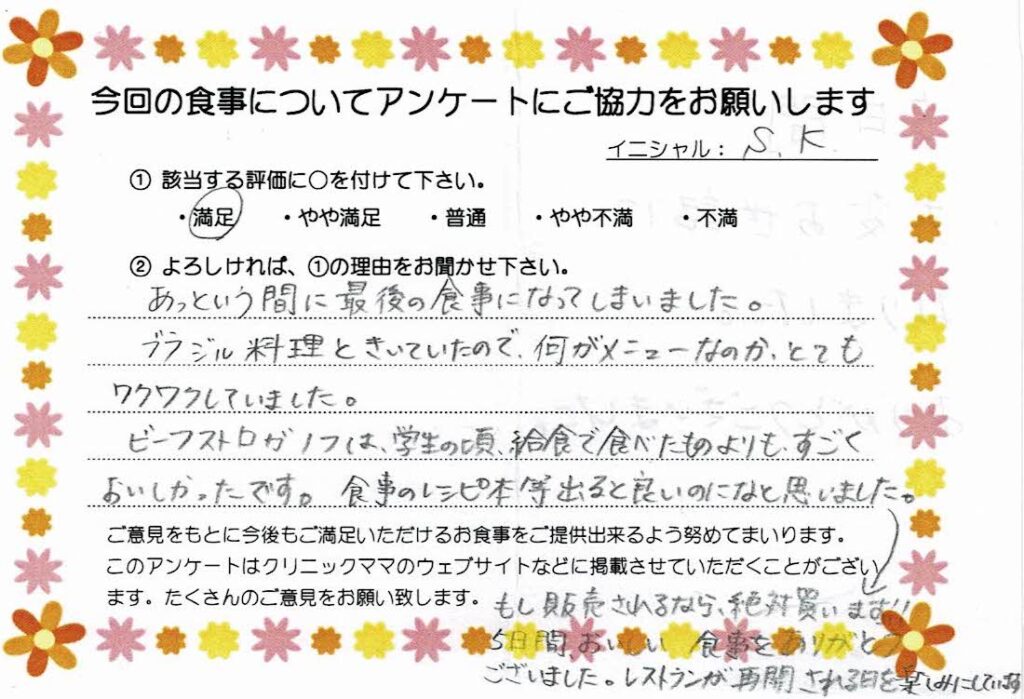 今回の食事についてアンケートにご協力をお願いします
イニシャル： S. K
① 該当する評価に○を付けて下さい。
・満足 ・やや満足 ・普通 ・やや不満 ・不満
② よろしければ、①の理由をお聞かせ下さい。
あっという間に最後の食事になってしまいました。
ブラジル料理ときいていたので、何がメニューなのか、とても
ワクワクしていました。
ビーフストロガノフは、学生の頃、給食で食べたものよりも、すごく
おいしかったです。食事のレシピ本等出ると良いのになと思いました。
ご意見をもとに今後もご満足いただけるお食事をご提供出来るよう努めてまいります。
このアンケートはクリニックママのウェブサイトなどに掲載させていただくことがござい
ます。たくさんのご意見をお願い致します。
もし販売されるなら、絶対買います!!
5日間、おいしい食事をありがとう
ございました。レストランが再開される日を楽しみにしています